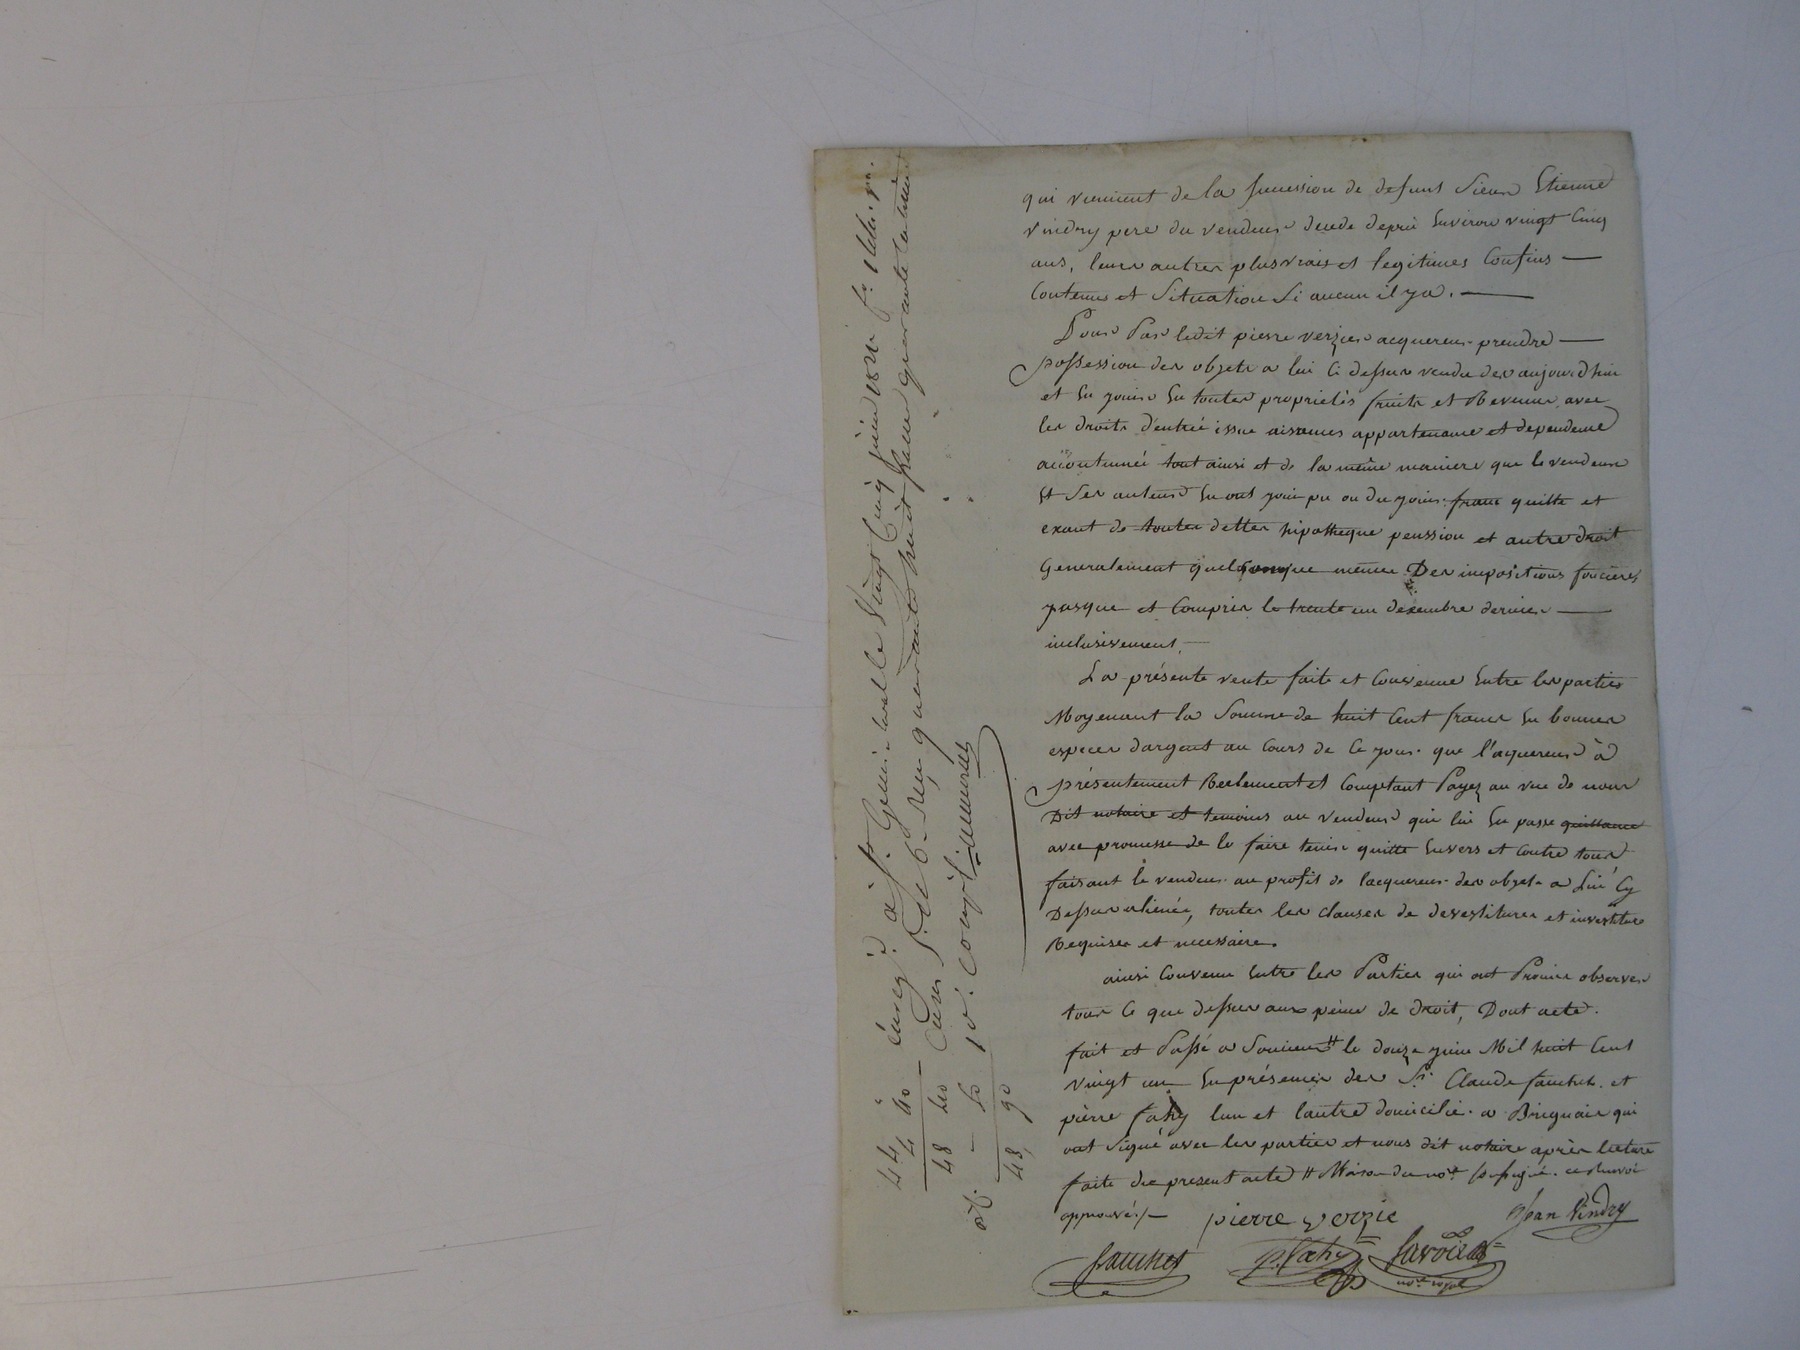 qui vienient de la succession de defunt Sieur Etienne
vindry pere du vendeur decede depui Environ vingt Cinq
ans, leurs autres plus vrais et legitimes Confins —
Contenus et Situation Si aucun il y a. —
Pour Par ledit pierre verzier acquereur prendre —
possession des objets a lui Ci dessus vendu des aujourdhui
et En jouir En toutes propriétés fruits et Revenus avec
les droits d'entrée issue aisances appartenance et dependence
accoutumée tout ainsi et de la même maniere que le vendeur
Et Ses auteurs En ont joui pu ou du jouir franc quitte et
exant de toutes dettes hipotheque penssion et autre droit
Generalement quelconque même Des impositions foncieres
jusque et Compris le trente un decembre dernier —
inclusivement, —
La présente vente faite et Convenue Entre les parties
Moyenant la Somme de huit Cent francs En bonnes
especes dargent au Cours de Ce jour que l'aquereur à
présentement Reelement et Comptant Payez au vue de nous
Dit notaire et temoins au vendeur qui lui En passe quittance
avec promesse de le faire tenir quitte Envers et Contre tous
faisant le vendeur au profit de lacquereur des objets a Lui Cy
Dessus aliénés, toutes les clauses de devestitures et investiture
Requises et necessaire.
ainsi Convenu Entre les Parties qui ont Promis observer
tout Ce que dessus aux peine de droit, Dont acte.
fait et Passé a Soucieu # le douze juin Mil huit Cent
vingt un En présence des Srs Claude fauchet et
pierre fahy lun et lautre domicilié a Brignais qui
ont Signé avec les parties et nous dit notaire après lecture
faite du present acte # Maison du not. Soussigné. ce Renvoi
approuvé /—
pierre verzie
Jean Vindry
fauchet
p. fahy
Savoie
nore royal
Enreg.é à St. Genis-laval le Vingt Cinq juin 1821 fo.
Cases 5 et 6. reçu quarante huit francs quarante centimes
10e. Compris.
44 „
4 40
48 40
— 50
48, 90